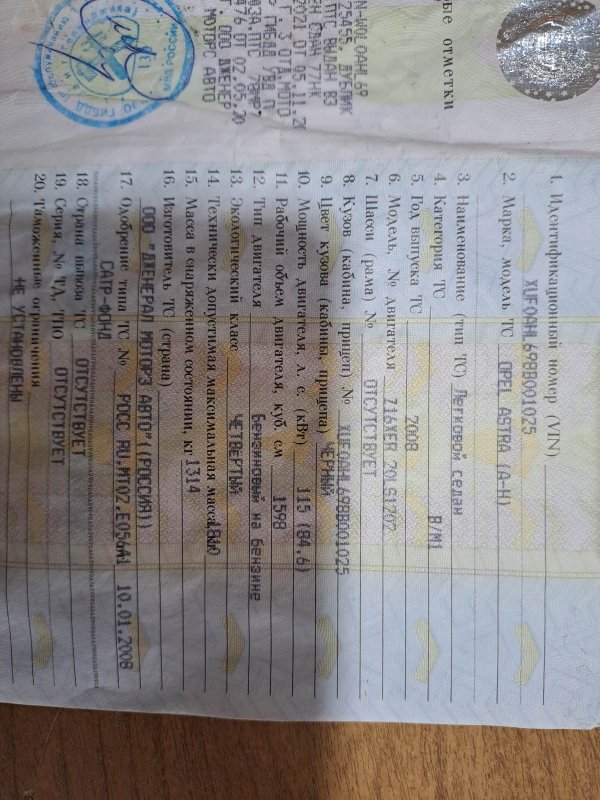 1. Идентификационный номер (VIN)
XUF0AHL698B001025
2. Марка, модель ТС OPEL ASTRA (A-H)
3. Наименование (тип ТС) Легковой седан
4. Категория ТС B/M1
5. Год выпуска ТС 2008
6. Модель, № двигателя Z16XER 20LS1202
7. Шасси (рама) № ОТСУТСТВУЕТ
8. Кузов (кабина, прицеп) № XUF0AHL698B001025
9. Цвет кузова (кабины, прицепа) ЧЕРНЫЙ
10. Мощность двигателя, л. с. (кВт) 115 (84.6)
11. Рабочий объем двигателя, куб. см 1598
12. Тип двигателя Бензиновый на бензине
13. Экологический класс ЧЕТВЕРТЫЙ
14. Технически допустимая максимальная масса
15. Масса в снаряженном состоянии, кг 1314
16. Изготовитель ТС (страна)
ООО "ДЖЕНЕРАЛ МОТОРЗ АВТО"((РОССИЯ))
17. Одобрение типа ТС № РОСС RU.MT02.E05641 10.01.2008
САТР-ФОНД
18. Страна вывоза ТС ОТСУТСТВУЕТ
19. Серия, № ТД, ТПО ОТСУТСТВУЕТ
20. Таможенные ограничения
НЕ УСТАНОВЛЕНЫ
отметки